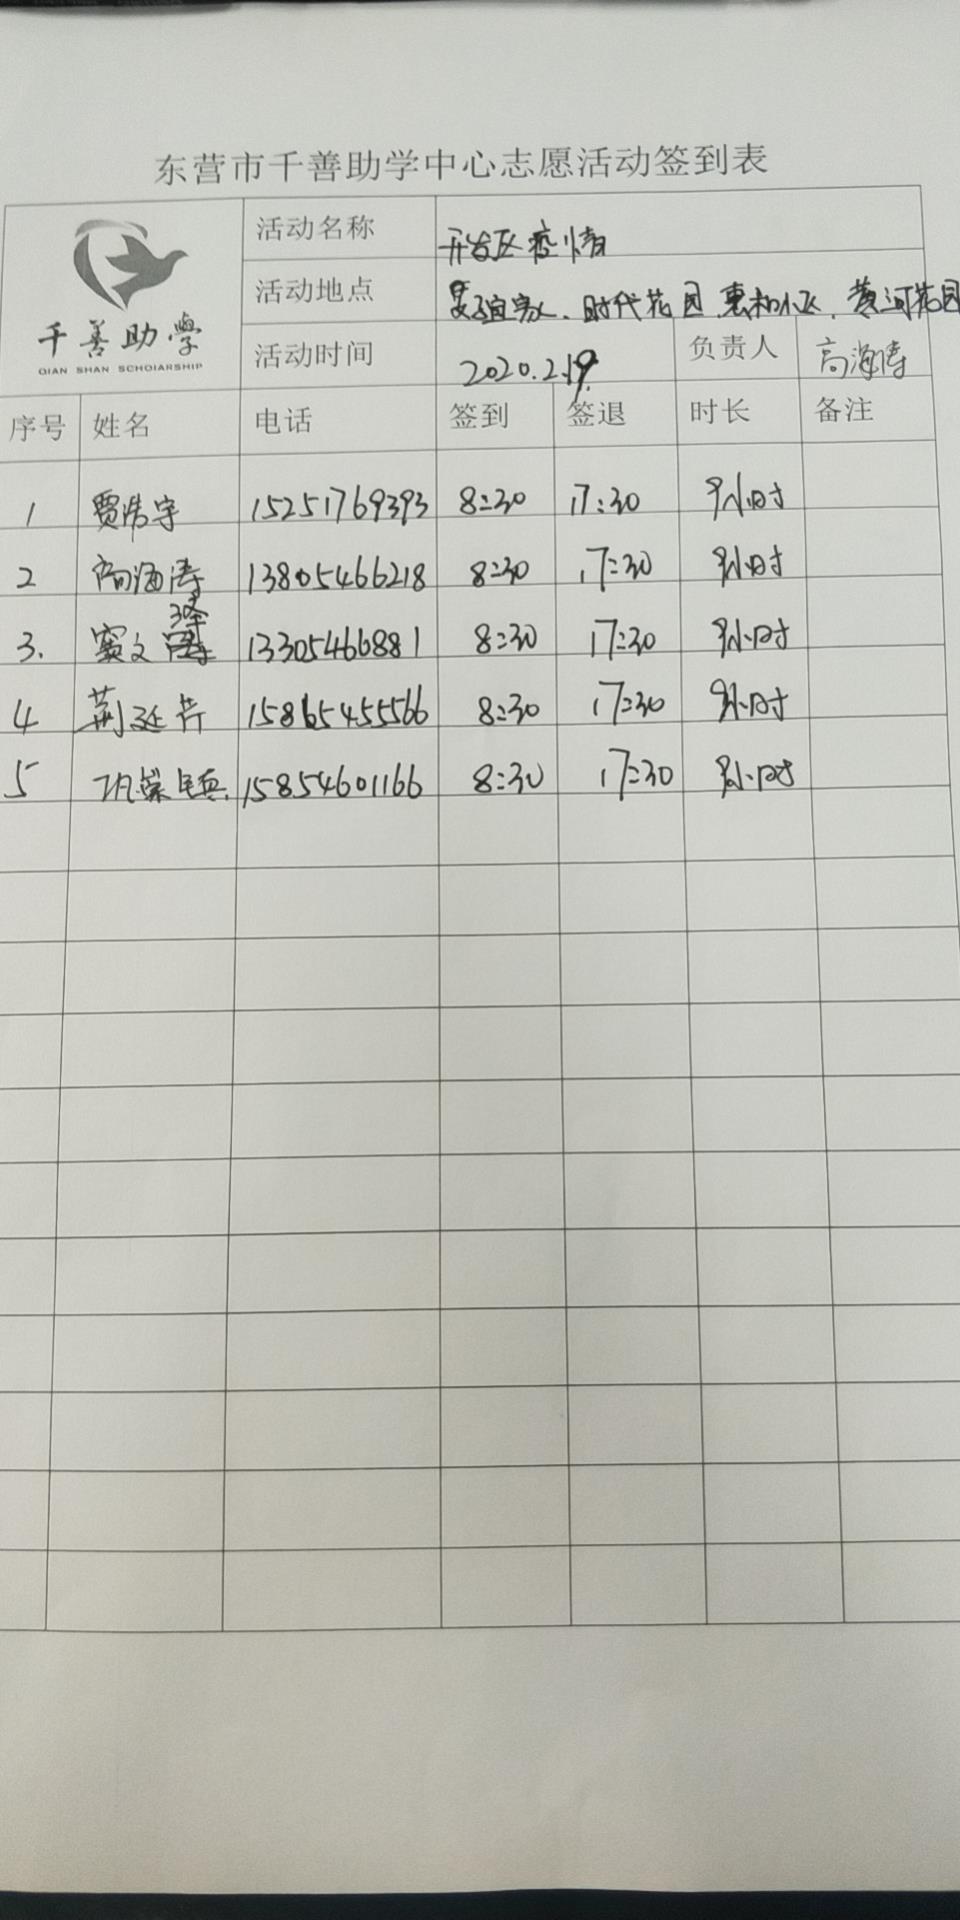 东营市千善助学中心志愿活动签到表
千善助學
QIAN SHAN SCHOIARSHIP
活动名称 开发区疫情
活动地点 时代花园.惠和小区.黄河花园
活动时间 2020.2.19. 负责人 高海涛
序号 姓名 电话 签到 签退 时长 备注
1 贾浩宇 15251769393 8:30 17:30 9小时
2 高海涛 13805466218 8:30 17:30 9小时
3. 窦文 13305466881 8:30 17:30 9小时
4 荆延芹 15865455566 8:30 17:30 9小时
5 15854601166 8:30 17:30 9小时